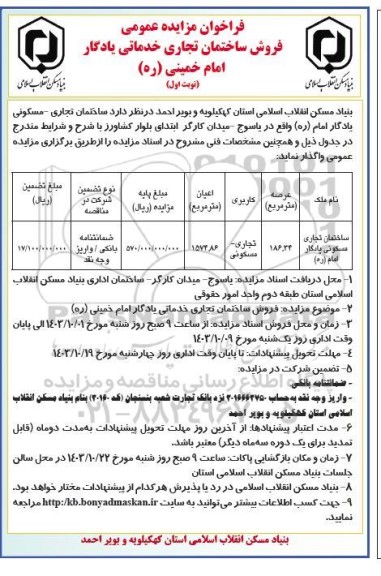 فراخوان مزایده عمومی
فروش ساختمان تجاری خدماتی یادگار
امام خمینی (ره)
(نوبت اول)
بنیاد مسکن انقلاب اسلامی
بنیاد مسکن انقلاب اسلامی
بنیاد مسکن انقلاب اسلامی استان کهکیلویه و بویر احمد درنظر دارد ساختمان تجاری -مسکونی
یادگار امام (ره) واقع در یاسوج -میدان کارگر ابتدای بلوار کشاورز با شرح و شرایط مندرج
در جدول ذیل و همچنین مشخصات فنی مشروح در اسناد مزایده را ازطریق برگزاری مزایده
عمومی واگذار نماید:
نام ملک	عرصه (مترمربع)	کاربری	اعیان (مترمربع)	مبلغ پایه مزایده (ریال)	نوع تضمین شرکت در مناقصه	مبلغ تضمین (ریال)
ساختمان تجاری مسکونی یادگار امام (ره)	۱۸۶,۳۴	تجاری- مسکونی	۱۵۷۴,۸۶	۵۷۰/۰۰۰/۰۰۰/۰۰۰	ضمانتنامه بانکی / واریز وجه نقد	۱۷/۱۰۰/۰۰۰/۰۰۰
۱- محل دریافت اسناد مزایده: یاسوج- میدان کارگر- ساختمان اداری بنیاد مسکن انقلاب
اسلامی استان طبقه دوم واحد امور حقوقی
۲- موضوع مزایده: فروش ساختمان تجاری خدماتی یادگار امام خمینی (ره)
۳- زمان و محل فروش اسناد مزایده: از ساعت ۹ صبح روز شنبه مورخ ۱۴۰۳/۱۰/۰۱ الی پایان
وقت اداری روز یک‌شنبه مورخ ۱۴۰۳/۱۰/۰۹
۴- مهلت تحویل پیشنهادات: تا پایان وقت اداری روز چهارشنبه مورخ ۱۴۰۳/۱۰/۱۹
۵- تضمین شرکت در مزایده:
- ضمانتنامه بانکی
- واریز وجه نقد به حساب ۲۰۱۶۶۶۲۷۵۰ نزد بانک تجارت شعب بنسنجان (کد ۲۰۱۶۰) بنام بنیاد مسکن انقلاب
اسلامی استان کهکیلویه و بویر احمد
۶- مدت اعتبار پیشنهادها: از آخرین روز مهلت تحویل پیشنهادات به‌مدت دوماه (قابل
تمدید برای یک دوره سه‌ماه دیگر) معتبر باشد.
۷- زمان و مکان بازگشایی پاکات: ساعت ۹ صبح روز شنبه مورخ ۱۴۰۳/۱۰/۲۲ در محل سالن
جلسات بنیاد مسکن انقلاب اسلامی استان
۸- بنیاد مسکن انقلاب اسلامی در رد یا پذیرش هرکدام از پیشنهادات مختار خواهد بود.
۹- جهت کسب اطلاعات بیشتر می‌توانید به سایت http://kb.bonyadmaskan.ir مراجعه
نمایید.
بنیاد مسکن انقلاب اسلامی استان کهکیلویه و بویر احمد